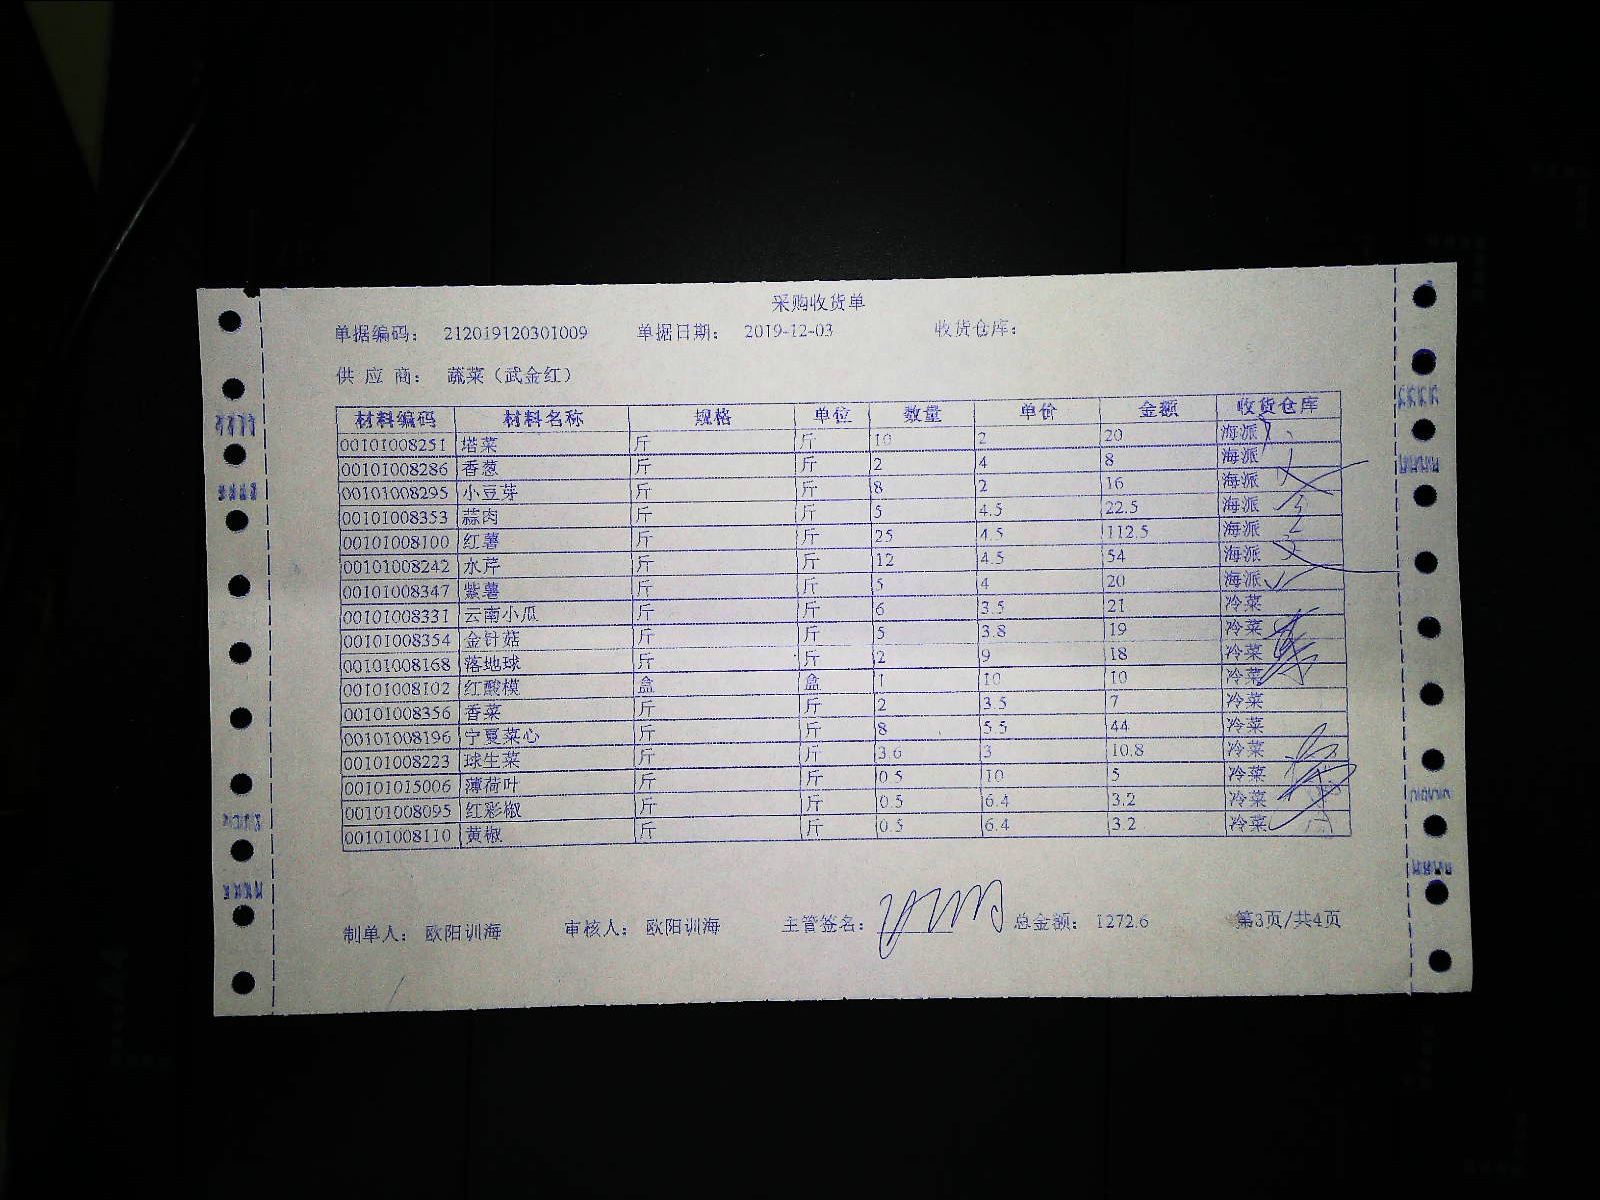 采购收货单
单据编码： 212019120301009 单据日期： 2019-12-03 收货仓库：
供 应 商： 蔬菜（武金红）
材料编码 材料名称 规格 单位 数量 单价 金额 收货仓库
00101008251 塔菜 斤 斤 10 2 20 海派
00101008286 香葱 斤 斤 2 4 8 海派
00101008295 小豆芽 斤 斤 8 2 16 海派
00101008353 蒜肉 斤 斤 5 4.5 22.5 海派
00101008100 红薯 斤 斤 25 4.5 112.5 海派
00101008242 水芹 斤 斤 12 4.5 54 海派
00101008347 紫薯 斤 斤 5 4 20 海派
00101008331 云南小瓜 斤 斤 6 3.5 21 冷菜
00101008354 金针菇 斤 斤 5 3.8 19 冷菜
00101008168 落地球 斤 斤 2 9 18 冷菜
00101008102 红酸模 盒 盒 1 10 10 冷菜
00101008356 香菜 斤 斤 2 3.5 7 冷菜
00101008196 宁夏菜心 斤 斤 8 5.5 44 冷菜
00101008223 球生菜 斤 斤 3.6 3 10.8 冷菜
00101015006 薄荷叶 斤 斤 0.5 10 5 冷菜
00101008095 红彩椒 斤 斤 0.5 6.4 3.2 冷菜
00101008110 黄椒 斤 斤 0.5 6.4 3.2 冷菜
制单人： 欧阳训海 审核人： 欧阳训海 主管签名： 总金额： 1272.6 第3页/共4页